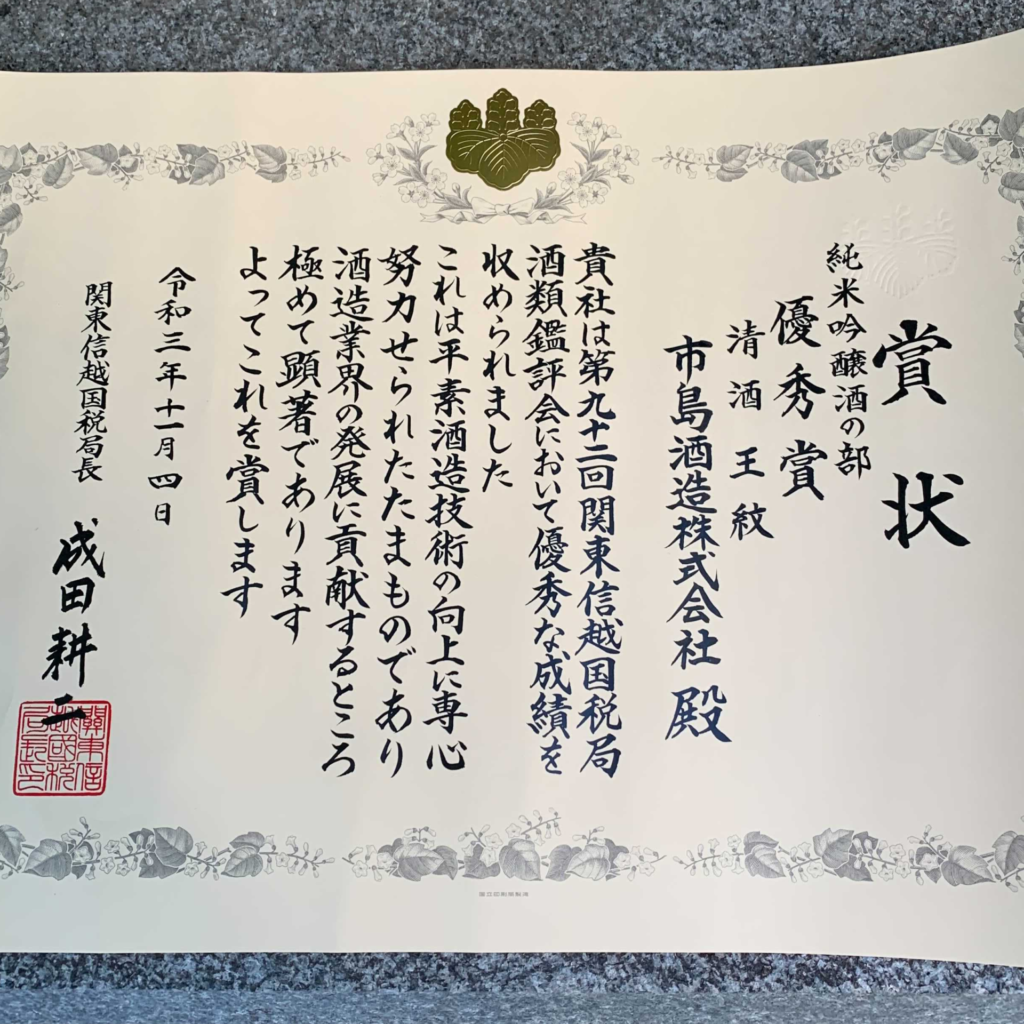 賞状
純米吟醸酒の部
優秀賞
清酒 王紋
市島酒造株式会社 殿
貴社は第九十二回関東信越国税局
酒類鑑評会において優秀な成績を
収められました
これは平素酒造技術の向上に専心
努力せられたたまものであり
酒造業界の発展に貢献するところ
極めて顕著であります
よってこれを賞します
令和三年十一月四日
関東信越国税局長
成田耕二
関東信
越國税
局長印
国立印刷局製造